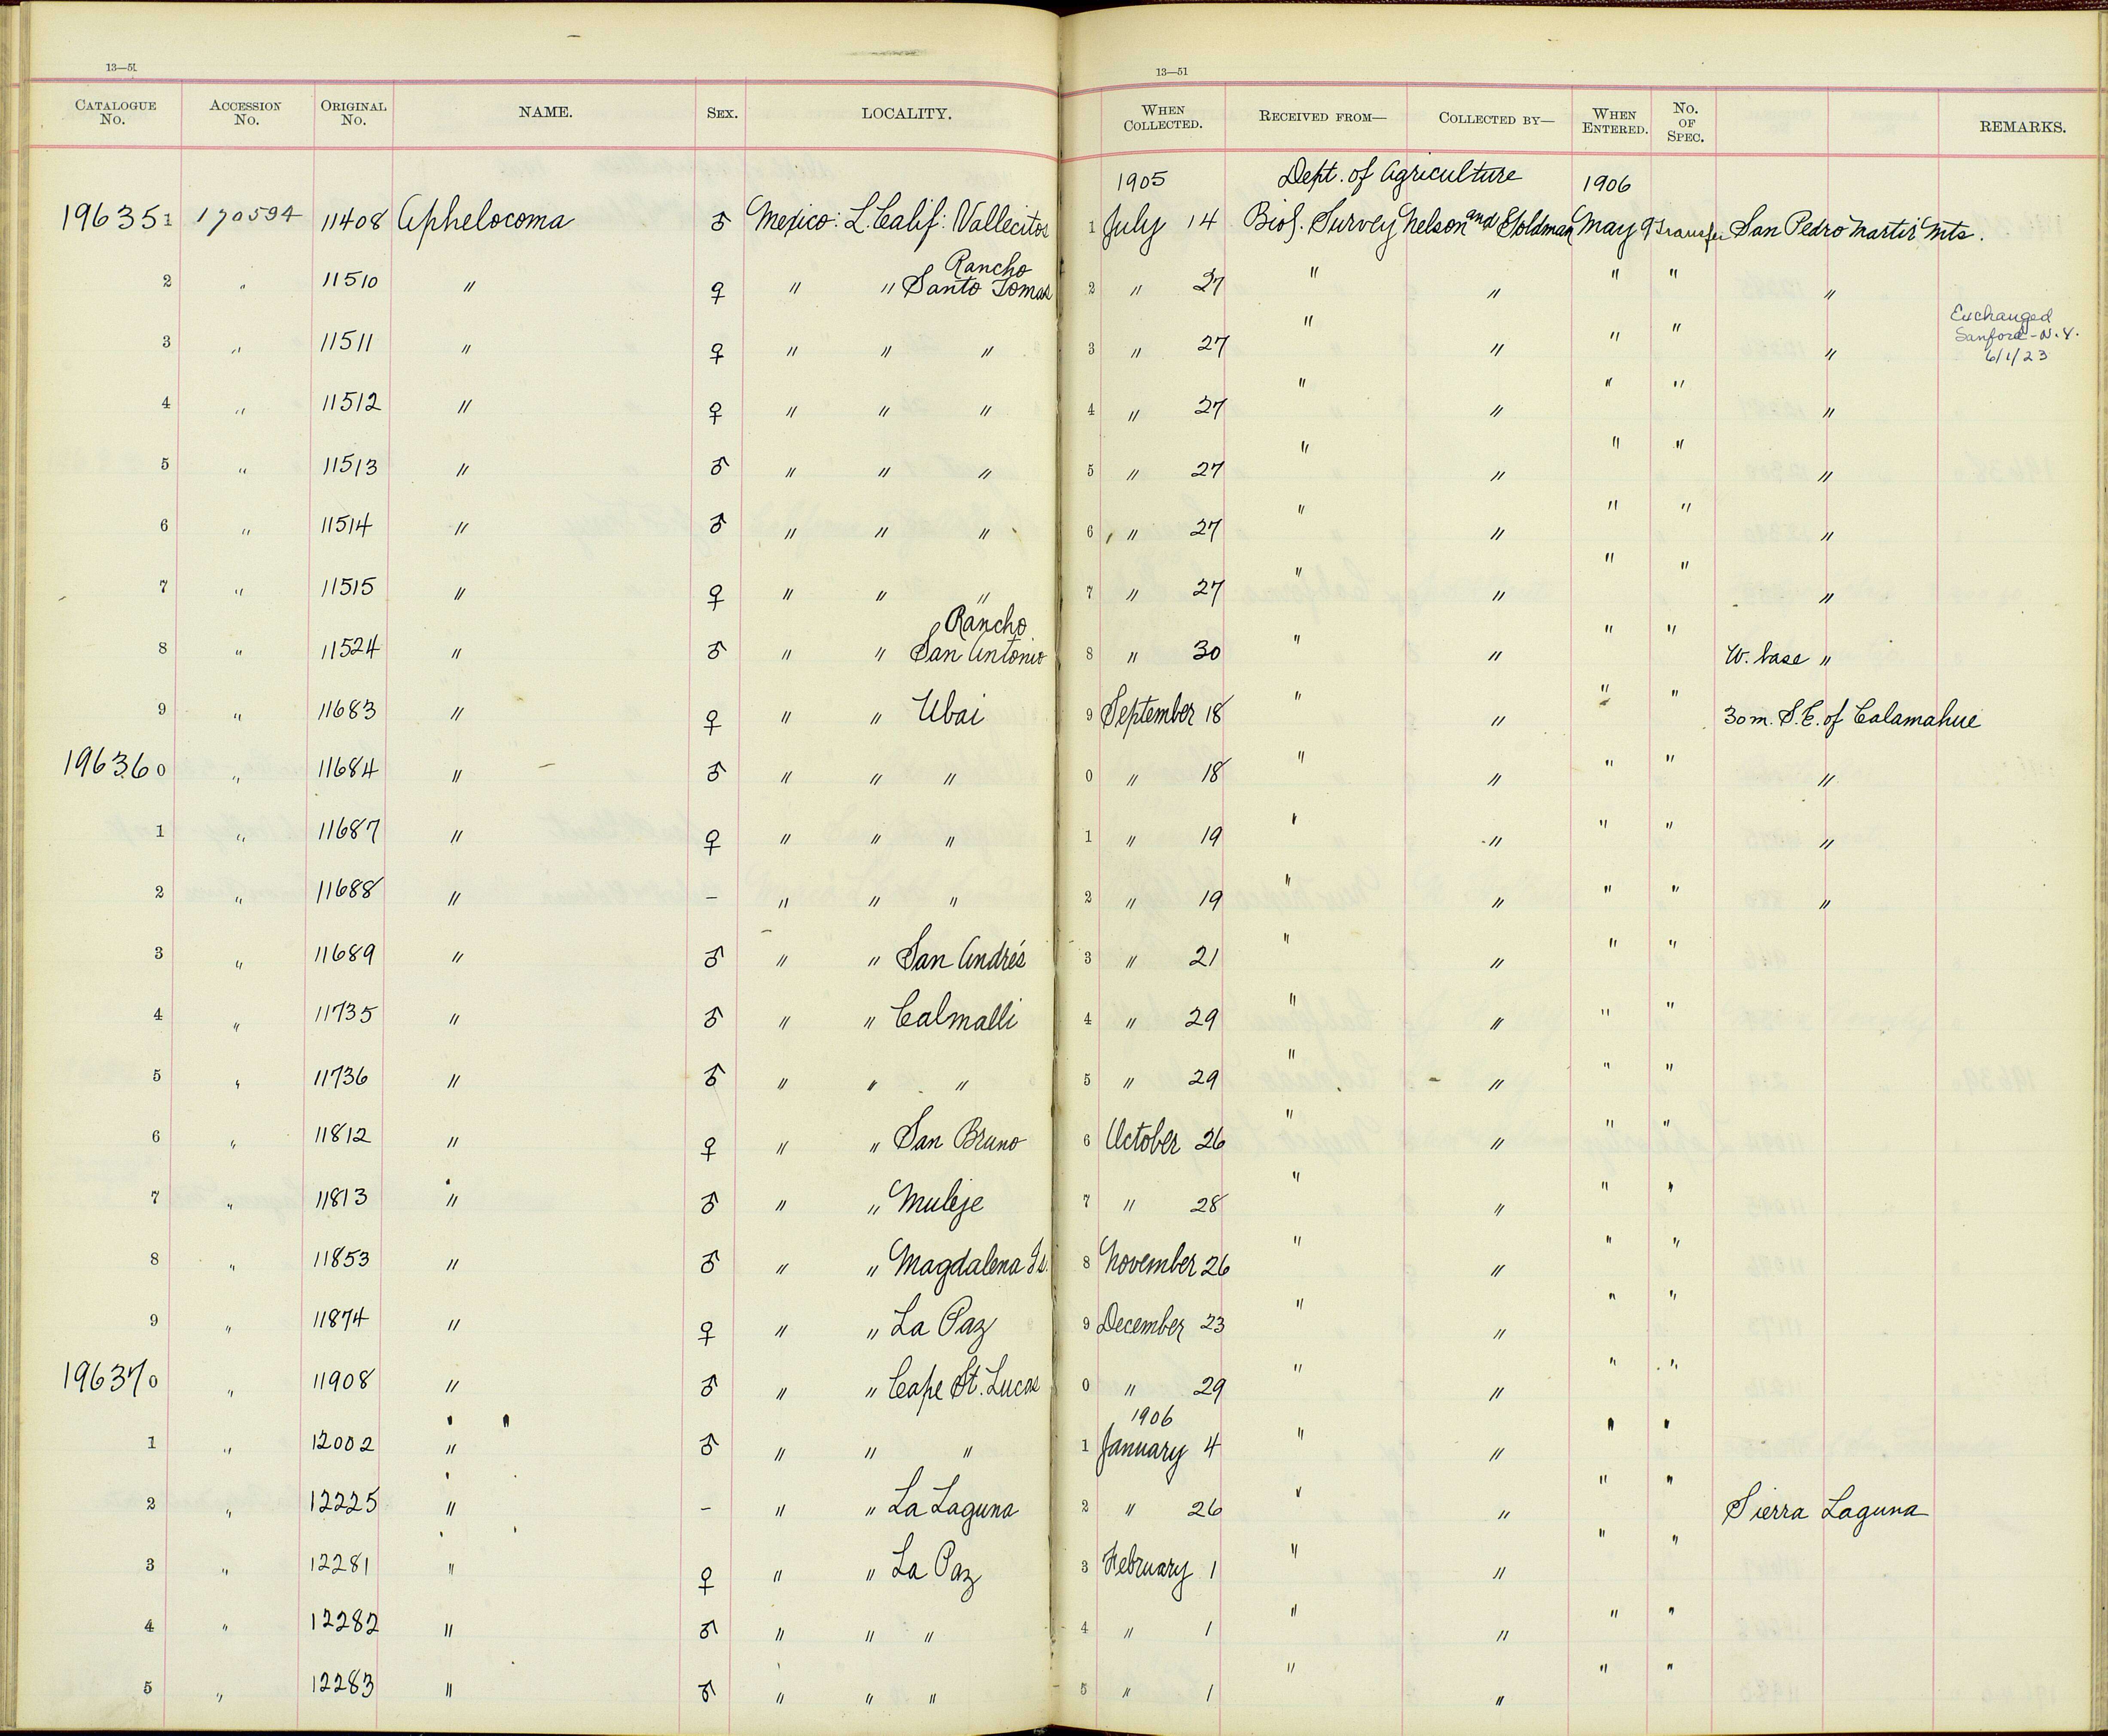 13—51 13—51
CATALOGUE No. ACCESSION No. ORIGINAL No. NAME. SEX. LOCALITY. WHEN COLLECTED. RECEIVED FROM— COLLECTED BY— WHEN ENTERED. No. OF SPEC. REMARKS.
1905 Dept. of Agriculture 1906
196351 170594 11408 Aphelocoma ♂ Mexico: L. Calif: Vallecitos 1 July 14 Biol. Survey Nelson and Goldman May 9 Transfer San Pedro Martir Mts.
Rancho
2 " 11510 " ♀ " " Santo Tomas 2 " 27 " " " " "
3 " 11511 " ♀ " " " 3 " 27 " " " " " Exchanged Sanford-N.Y. 6/1/23
4 " 11512 " ♀ " " " 4 " 27 " " " " "
5 " 11513 " ♂ " " " 5 " 27 " " " " "
6 " 11514 " ♂ " " " 6 " 27 " " " " "
7 " 11515 " ♀ " " " 7 " 27 " " " " "
Rancho
8 " 11524 " ♂ " " San Antonio 8 " 30 " " " " W. base "
9 " 11683 " ♀ " " Ubai 9 September 18 " " " " 30 m. S.E. of Calamahue
196360 " 11684 " ♂ " " " 0 " 18 " " " " "
1 " 11687 " ♀ " " " 1 " 19 " " " " "
2 " 11688 " – " " " 2 " 19 " " " " "
3 " 11689 " ♂ " " San Andrés 3 " 21 " " " "
4 " 11735 " ♂ " " Calmalli 4 " 29 " " " "
5 " 11736 " ♂ " " " 5 " 29 " " " "
6 " 11812 " ♀ " " San Bruno 6 October 26 " " " "
7 " 11813 " ♂ " " Muleje 7 " 28 " " " "
8 " 11853 " ♂ " " Magdalena Is. 8 November 26 " " " "
9 " 11874 " ♀ " " La Paz 9 December 23 " " " "
196370 " 11908 " ♂ " " Cape St. Lucas 0 " 29 " " " "
1906
1 " 12002 " ♂ " " " 1 January 4 " " " "
2 " 12225 " – " " La Laguna 2 " 26 " " " " Sierra Laguna
3 " 12281 " ♀ " " La Paz 3 February 1 " " " "
4 " 12282 " ♂ " " " 4 " 1 " " " "
5 " 12283 " ♂ " " " 5 " 1 " " " "